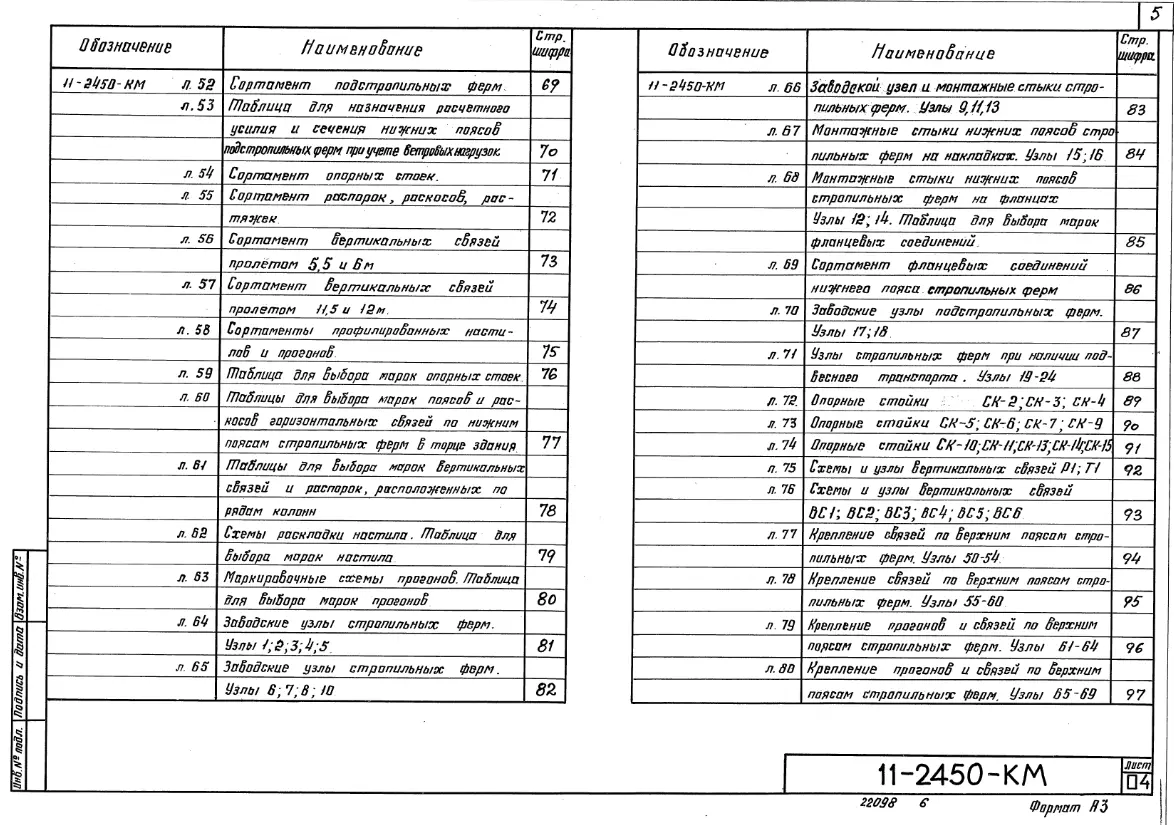 5
Обозначение Наименование Стр. шифра
11-2450-КМ л. 52 Сортамент подстропильных ферм. 69
л. 53 Таблица для назначения расчетного
усилия и сечения нижних поясов
подстропильных ферм при учете ветровых нагрузок. 70
л. 54 Сортамент опорных стоек. 71
л. 55 Сортамент распорок, раскосов, рас-
тяжек 72
л. 56 Сортамент вертикальных связей
пролётом 5,5 и 6 м 73
л. 57 Сортамент вертикальных связей
пролетом 11,5 и 12 м. 74
л. 58 Сортаменты профилированных насти-
лов и прогонов 75
л. 59 Таблица для выбора марок опорных стоек 76
л. 60 Таблицы для выбора марок поясов и рас-
косов горизонтальных связей по нижним
поясам стропильных ферм в торце здания 77
л. 61 Таблицы для выбора марок вертикальных
связей и распорок, расположенных по
рядам колонн 78
л. 62 Схемы раскладки настила. Таблица для
выбора марок настила 79
л. 63 Маркировочные схемы прогонов. Таблица
для выбора марок прогонов 80
л. 64 Заводские узлы стропильных ферм.
Узлы 1; 2; 3; 4; 5. 81
л. 65 Заводские узлы стропильных ферм.
Узлы 6; 7; 8; 10 82
Обозначение Наименование Стр. шифра
11-2450-КМ л. 66 Заводской узел и монтажные стыки стро-
пильных ферм. Узлы 9, 11, 13 83
л. 67 Монтажные стыки нижних поясов стро-
пильных ферм на накладках. Узлы 15; 16 84
л. 68 Монтажные стыки нижних поясов
стропильных ферм на фланцах
Узлы 12; 14. Таблица для выбора марок
фланцевых соединений. 85
л. 69 Сортамент фланцевых соединений
нижнего пояса стропильных ферм 86
л. 70 Заводские узлы подстропильных ферм.
Узлы 17; 18. 87
л. 71 Узлы стропильных ферм при наличии под-
весного транспорта. Узлы 19-24 88
л. 72. Опорные стойки СК-2; СК-3; СК-4 89
л. 73 Опорные стойки СК-5; СК-6; СК-7; СК-9 90
л. 74 Опорные стойки СК-10; СК-11; СК-13; СК-14; СК-15 91
л. 75 Схемы и узлы вертикальных связей Р1; Т1 92
л. 76 Схемы и узлы вертикальных связей
ВС1; ВС2; ВС3; ВС4; ВС5; ВС6 93
л. 77 Крепление связей по верхним поясам стро-
пильных ферм. Узлы 50-54. 94
л. 78 Крепление связей по верхним поясам стро-
пильных ферм. Узлы 55-60 95
л. 79 Крепление прогонов и связей по верхним
поясам стропильных ферм. Узлы 61-64 96
л. 80 Крепление прогонов и связей по верхним
поясам стропильных ферм. Узлы 65-69 97
Инв. № подл. Подпись и дата Взам. инв. №
11-2450-КМ Лист 04
22098 6 Формат А3